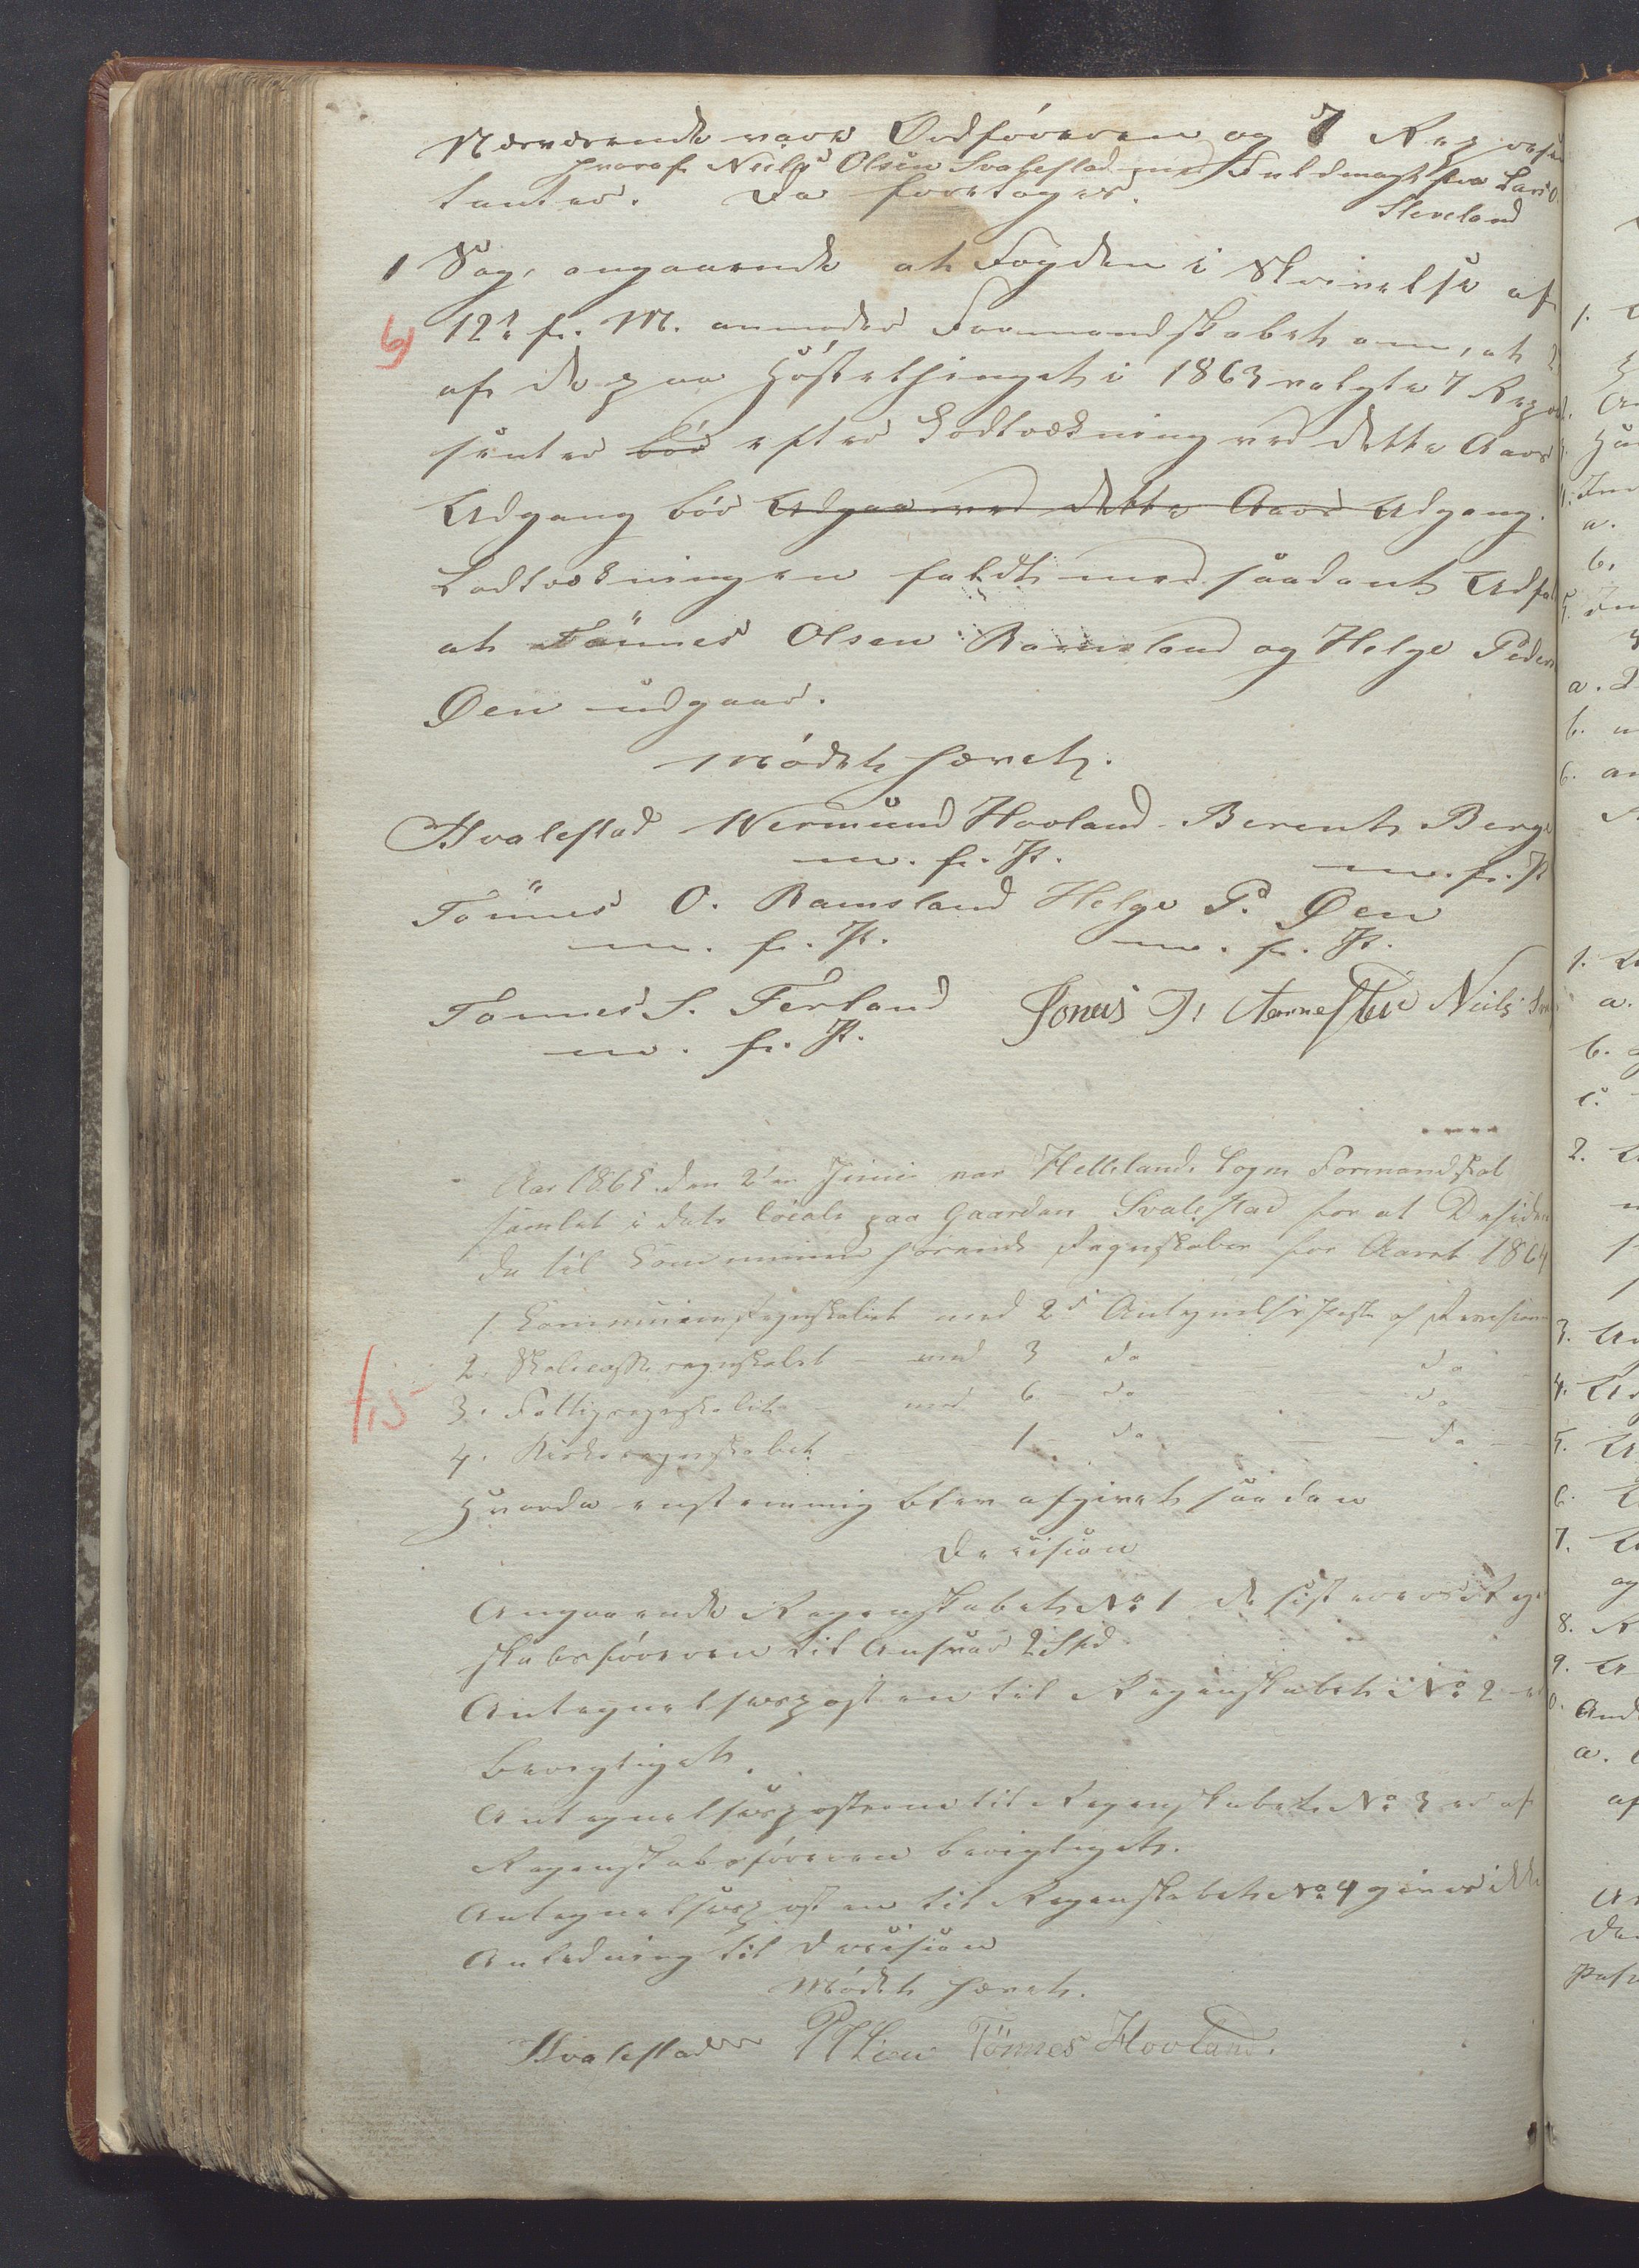 Nærværende vare Ordføreren og 7 Repræsen
hvoraf Neils Olsen Svalestad med Fuldmagt fra Lars O.
Sleveland
tanter. Da foretoges.
1 Sag, angaaende at Fogden i Skrivelse af
6)
12te f. M. anmoder Formandskabet om, at 2
af de paa Høstethinget i 1863 valgte 7 Repræ
senter bør efter Lodtrækning ved dette Aars
Udgang bør Udgaa ved dette Aars Udgang.
Lodtrækningen faldt med saadant Udfal
at Tönnes Olsen Ramsland og Helge Peders
Øen udgaar.
Mødet hævet.
Hvalestad Wermund Hovland Berent Berge
m. f. P. m. f. P
Tönnes O. Ramsland Helge P. Øen
m. f. P. m. f. P.
Tønnes S. Førland Jonas J. Neils
m. f. P.
Aar 1865 den 2den Juni var Hellelands Sogns Formandskab
samlet i dets locale paa Gaarden Svalestad for at Deside
de til Communen hørende Regnskaber for Aaret 1864
1. Communeregnskabet med 2de Antegnelsesposter af Revisionen
2. Skolecasseregnskabet – med 3 do – do –
15
3. Fattigregnskabet – med 6 – do – do –
4. Kirkeregnskabet 1 do – do –
Hvorda enstemmig blev afgivet saadan
Decision
Angaaende Regenskabet No 1 desisterers Regn
skabsføreren til Ansvar 2 Skd
Antegnelsesposten til Regenskabet No 2
bevigtiget.
Antegnelsesposterne til Regenskabet No 3 er af
Regenskabsføreren bevigtiget.
Antegnelsesposten til Regenskabet No 4 giver ikke
Anledning til Decision
Mødet hævet.
Hvalestad Tönnes Hovland.